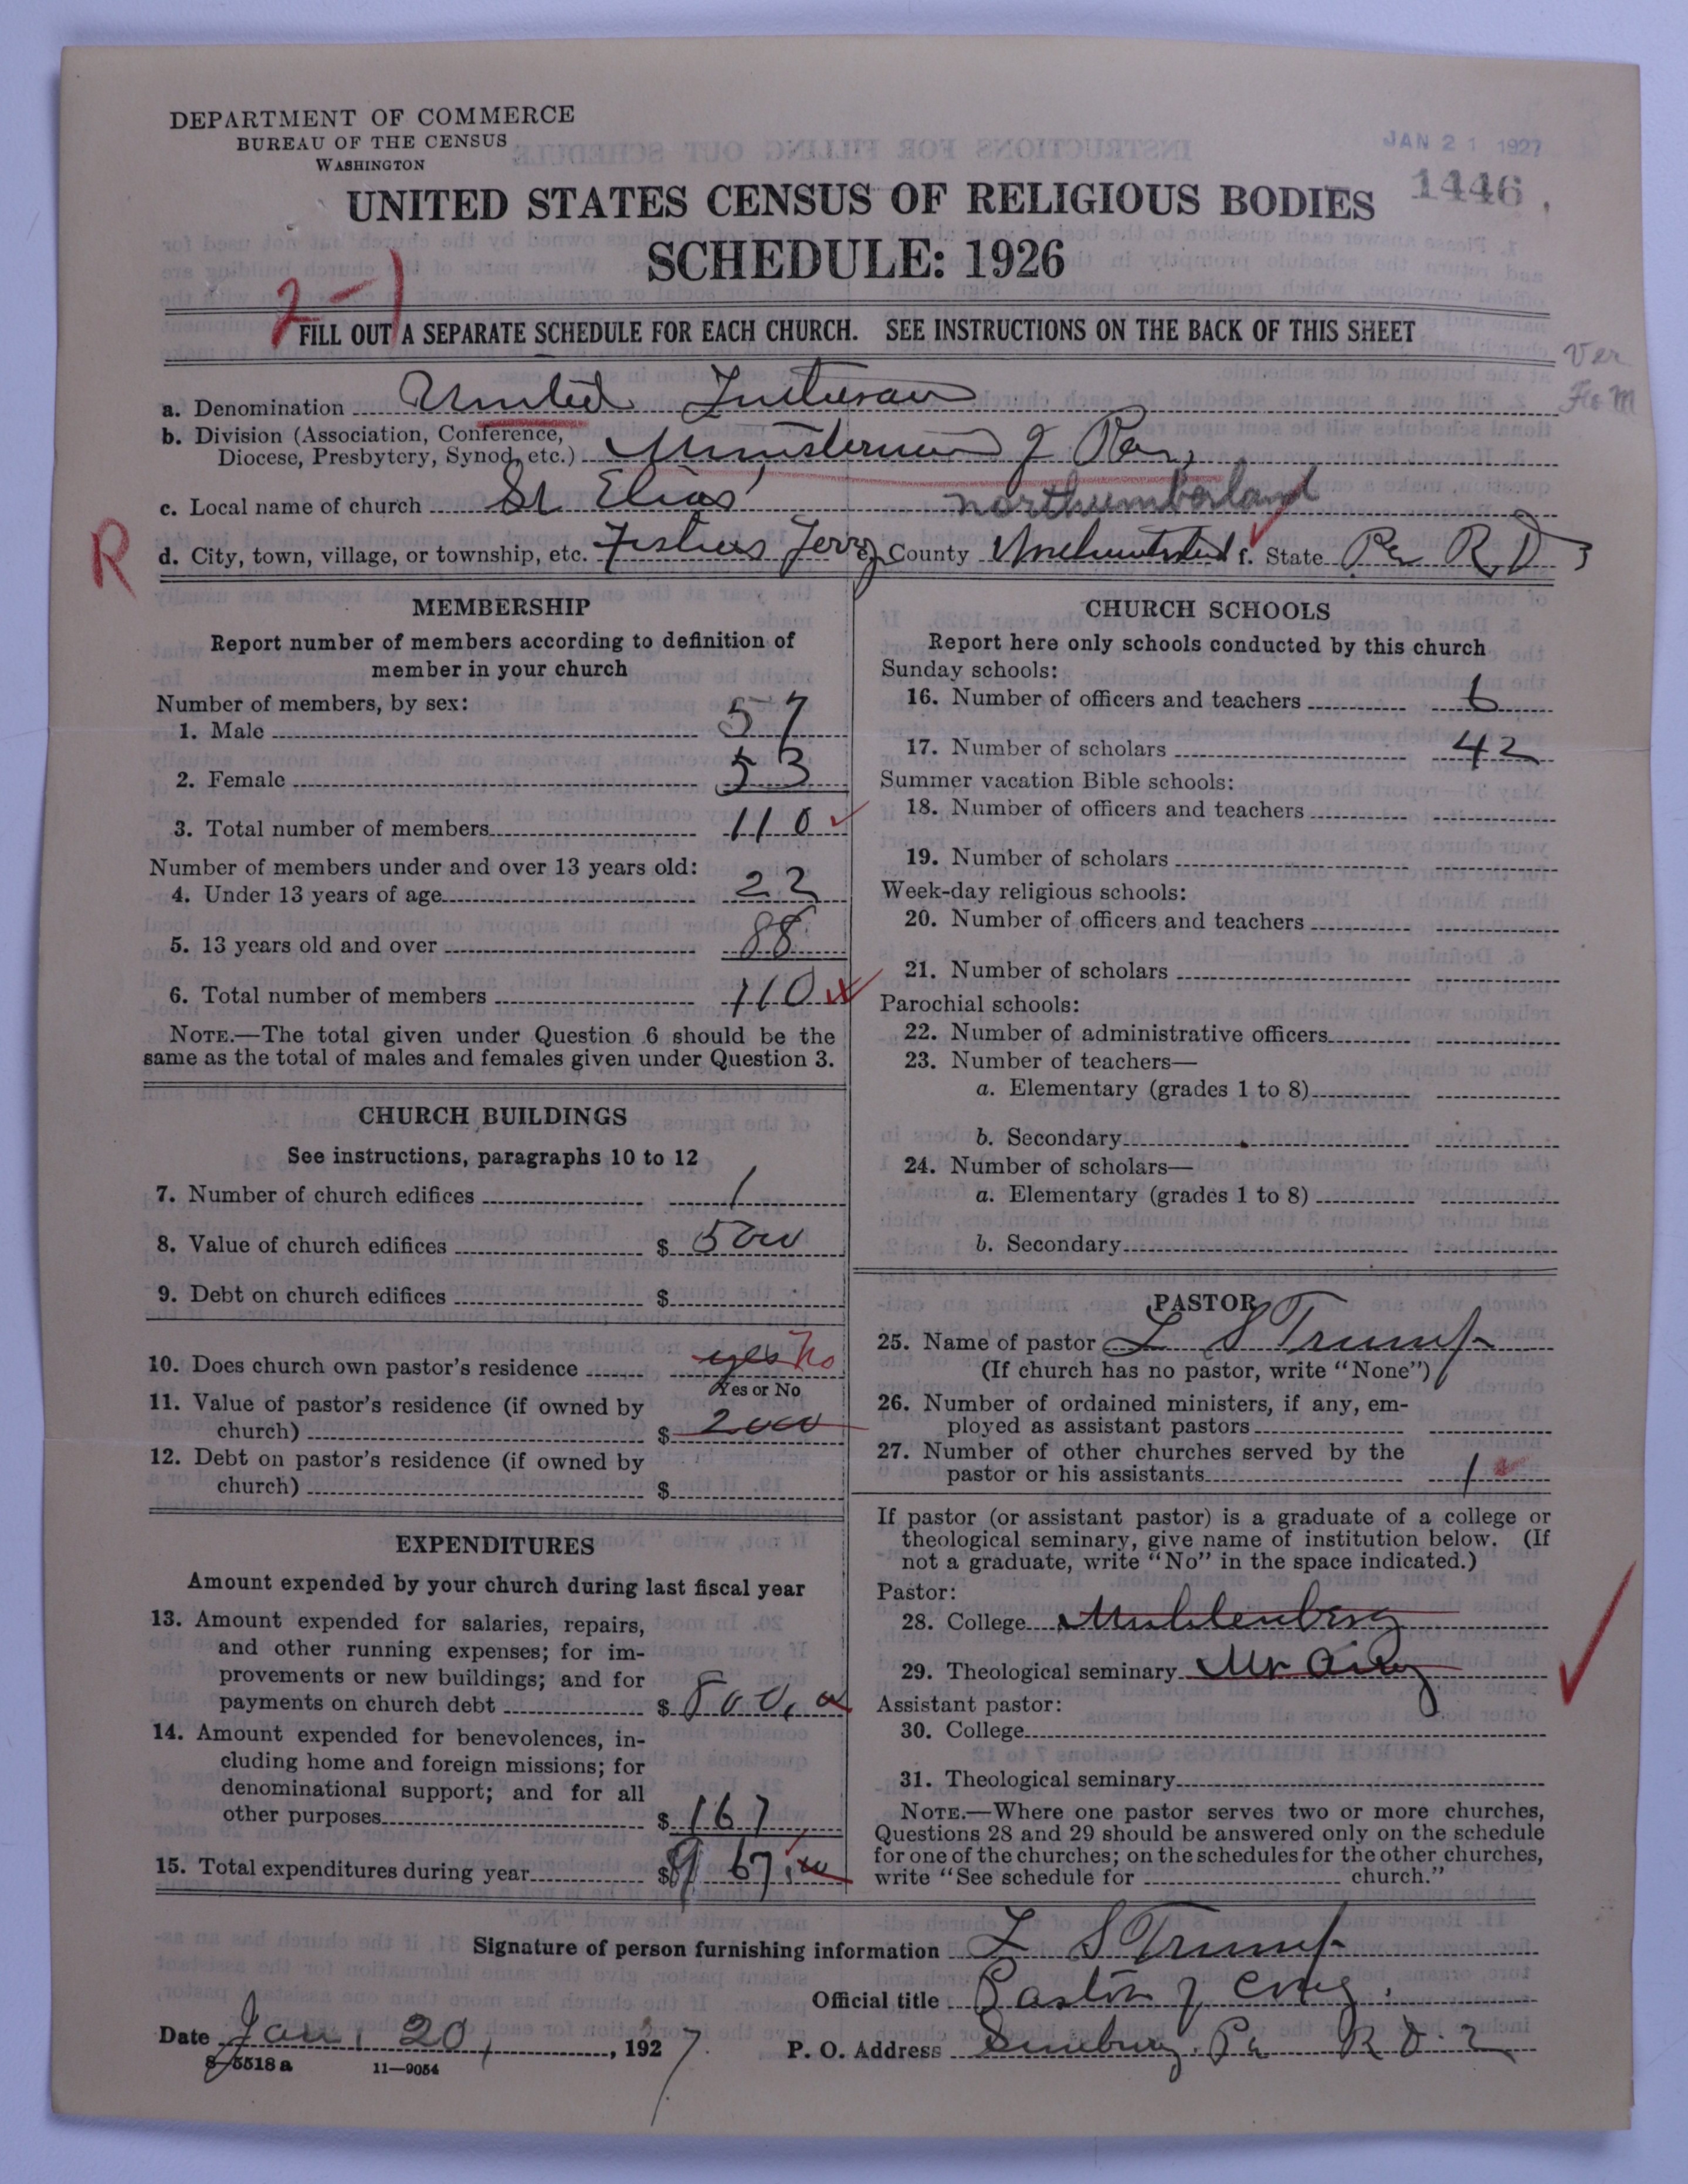 DEPARTMENT OF COMMERCE
BUREAU OF THE CENSUS
WASHINGTON
JAN 21 1927
1446
UNITED STATES CENSUS OF RELIGIOUS BODIES
SCHEDULE: 1926
2-1
FILL OUT A SEPARATE SCHEDULE FOR EACH CHURCH. SEE INSTRUCTIONS ON THE BACK OF THIS SHEET
Ver
a. Denomination United Lutheran
b. Division (Association, Conference,
Diocese, Presbytery, Synod, etc.) Ministerium of Pa,
c. Local name of church St Elias'
Northumberland
R
d. City, town, village, or township, etc. Fishers Ferry e. County f. State Pa R D 3
MEMBERSHIP
Report number of members according to definition of
member in your church
Number of members, by sex:
1. Male 57
2. Female 53
3. Total number of members 110
Number of members under and over 13 years old:
4. Under 13 years of age 22
5. 13 years old and over 88
6. Total number of members 110
NOTE.—The total given under Question 6 should be the
same as the total of males and females given under Question 3.
CHURCH BUILDINGS
See instructions, paragraphs 10 to 12
7. Number of church edifices 1
8. Value of church edifices $ 5000
9. Debt on church edifices $
10. Does church own pastor's residence yes No
Yes or No
11. Value of pastor's residence (if owned by
church) $ 2000
12. Debt on pastor's residence (if owned by
church) $
EXPENDITURES
Amount expended by your church during last fiscal year
13. Amount expended for salaries, repairs,
and other running expenses; for im-
provements or new buildings; and for
payments on church debt $ 800.00
14. Amount expended for benevolences, in-
cluding home and foreign missions; for
denominational support; and for all
other purposes $ 167
15. Total expenditures during year $ 967.00
CHURCH SCHOOLS
Report here only schools conducted by this church
Sunday schools:
16. Number of officers and teachers 6
17. Number of scholars 42
Summer vacation Bible schools:
18. Number of officers and teachers
19. Number of scholars
Week-day religious schools:
20. Number of officers and teachers
21. Number of scholars
Parochial schools:
22. Number of administrative officers
23. Number of teachers—
a. Elementary (grades 1 to 8)
b. Secondary
24. Number of scholars—
a. Elementary (grades 1 to 8)
b. Secondary
PASTOR
25. Name of pastor L S Trump
(If church has no pastor, write "None")
26. Number of ordained ministers, if any, em-
ployed as assistant pastors
27. Number of other churches served by the
pastor or his assistants 1
If pastor (or assistant pastor) is a graduate of a college or
theological seminary, give name of institution below. (If
not a graduate, write "No" in the space indicated.)
Pastor:
28. College Muhlenberg
29. Theological seminary Mt Airy
Assistant pastor:
30. College
31. Theological seminary
NOTE.—Where one pastor serves two or more churches,
Questions 28 and 29 should be answered only on the schedule
for one of the churches; on the schedules for the other churches,
write "See schedule for church."
Signature of person furnishing information L S Trump
Official title Pastor of Cong.
Date Jan. 20, 1927
P. O. Address Sunbury, Pa R D. 2
8-5518 a 11-9054